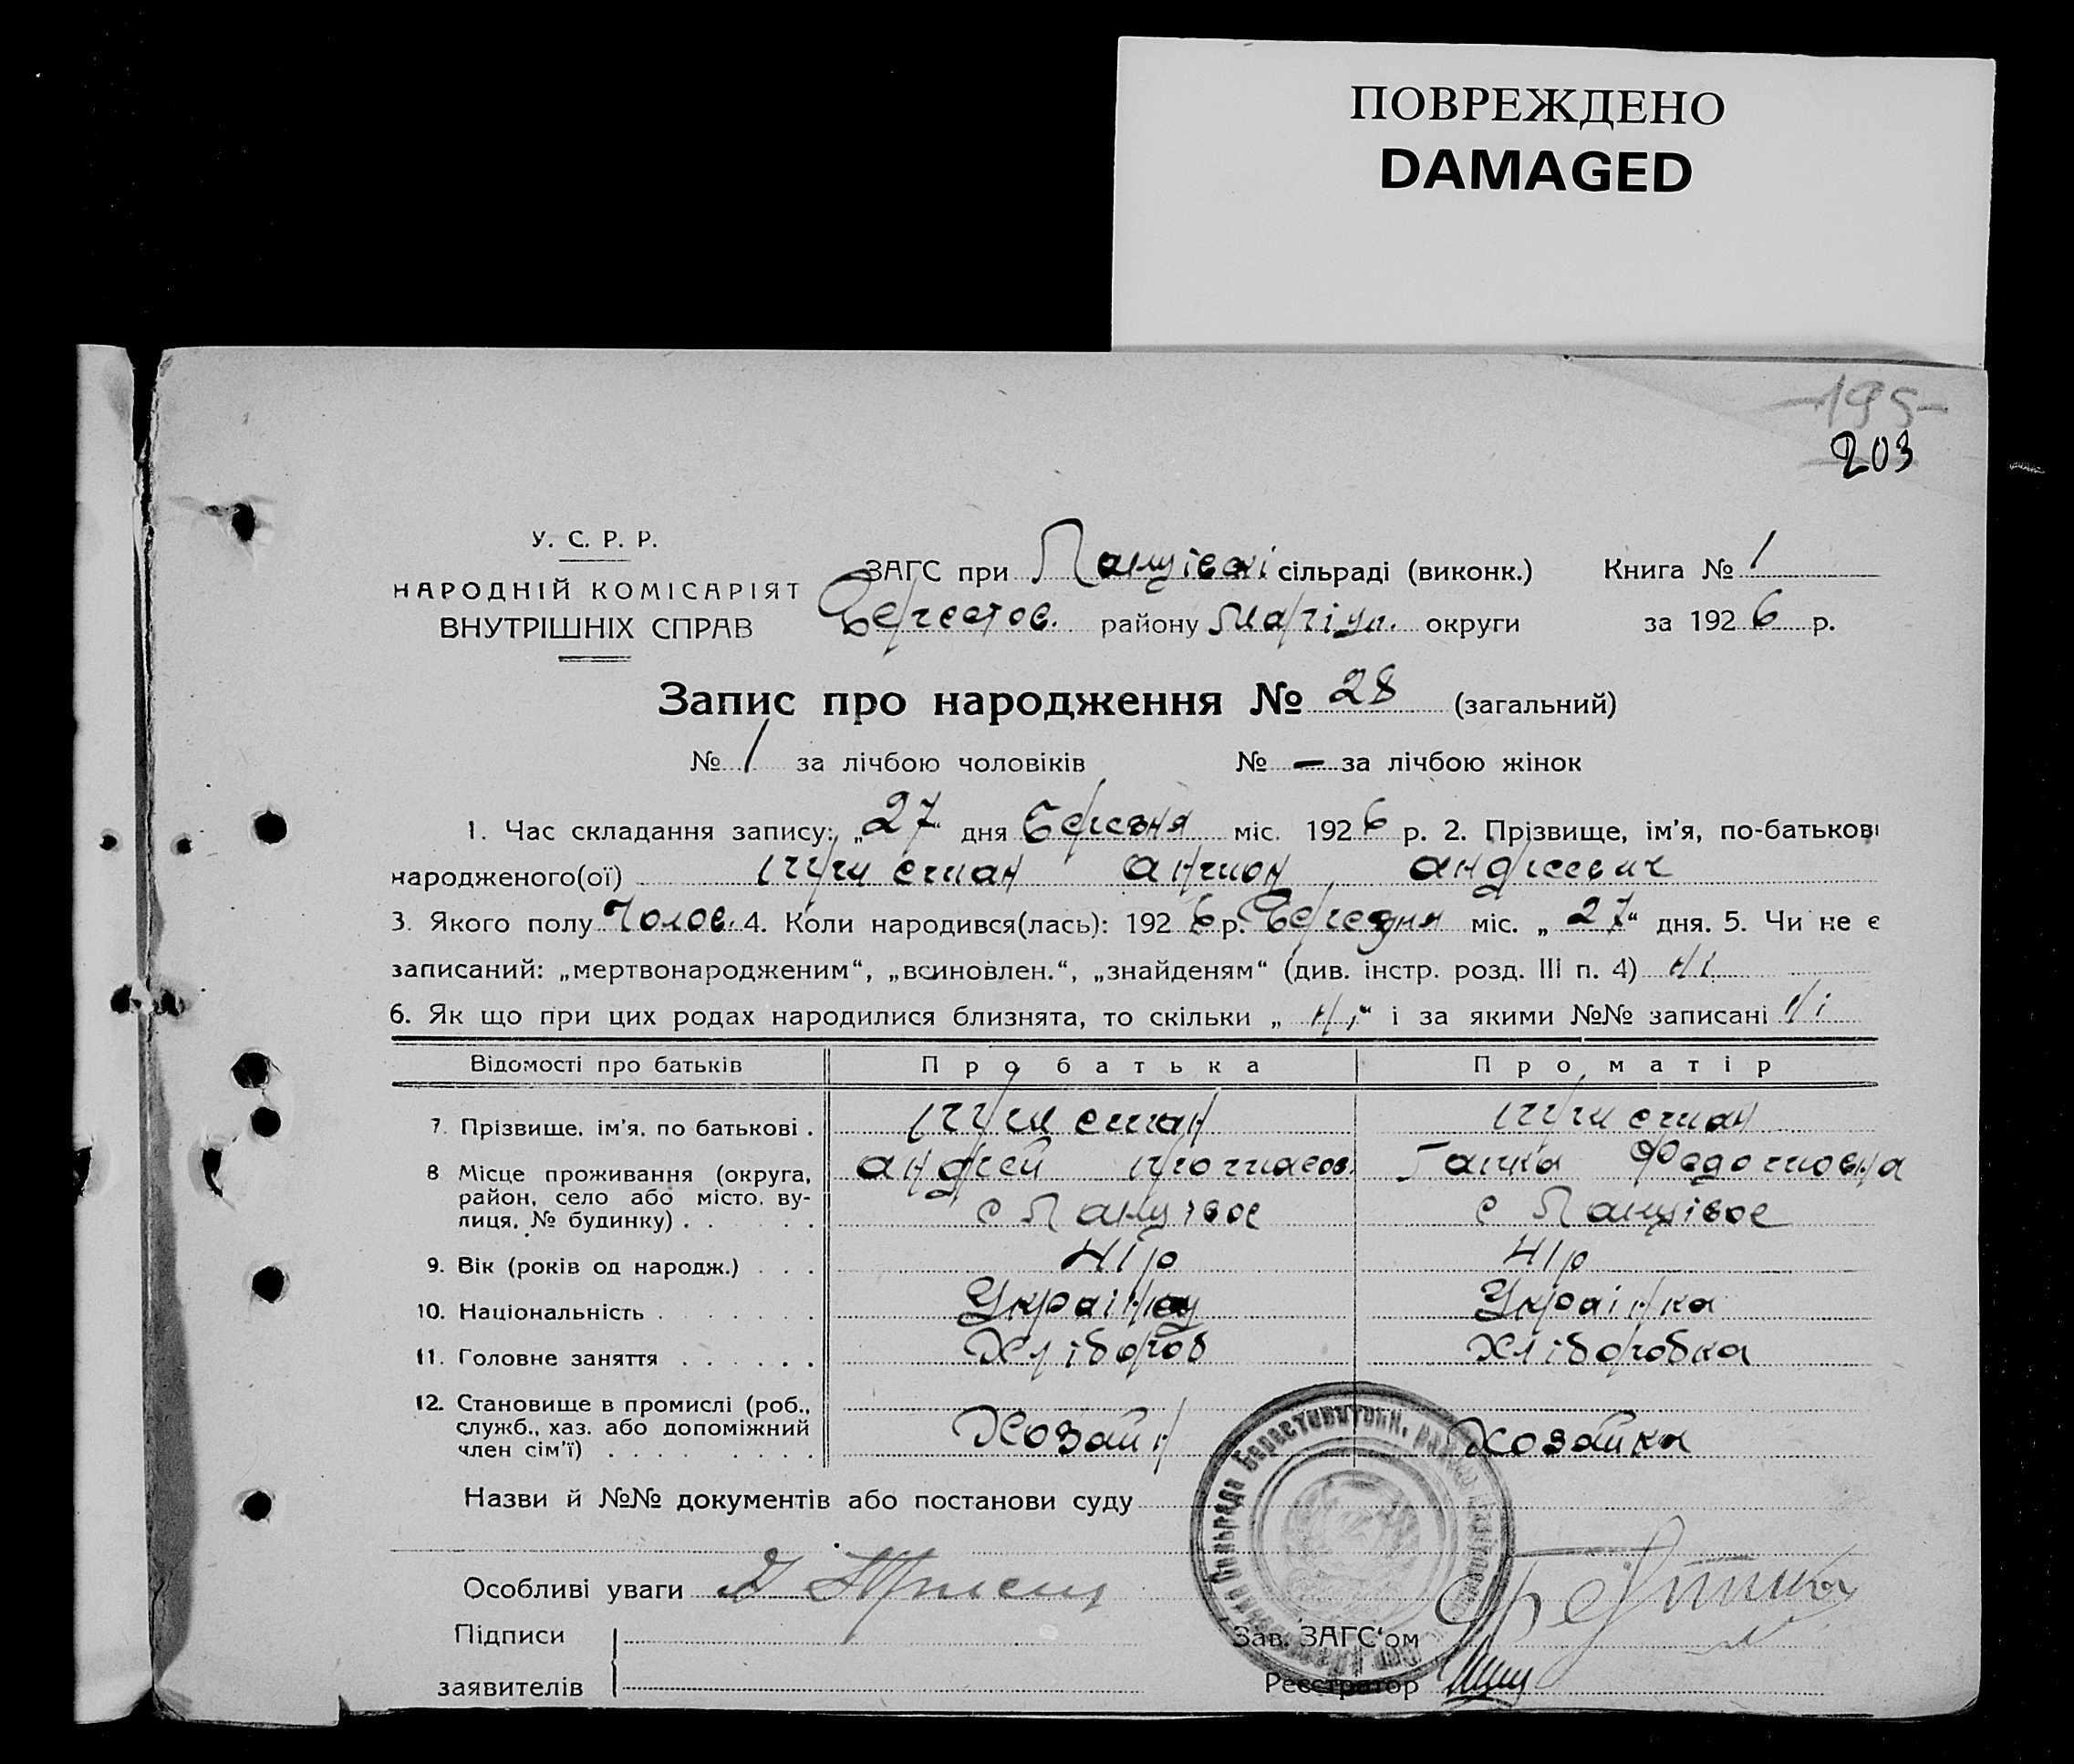 ПОВРЕЖДЕНО
DAMAGED
-195-
203
У. С. Р. Р.
НАРОДНІЙ КОМІСАРІЯТ
ВНУТРІШНІХ СПРАВ
ЗАГС при сільраді (виконк.) Книга № 1
Берестов. району Маріуп. округи за 1926 р.
Запис про народження № 28 (загальний)
№ 1 за лічбою чоловіків № — за лічбою жінок
1. Час складання запису: „27“ дня Березня міс. 1926 р. 2. Прізвище, ім'я, по-батькові
народженого(ої) Антон Андрєевич
3. Якого полу Чолов. 4. Коли народився(лась): 1926 р. міс. „27“ дня. 5. Чи не є
записаний: „мертвонародженим“, „всиновлен.“, „знайденям“ (див. інстр. розд. III п. 4) Ні
6. Як що при цих родах народилися близнята, то скільки „Ні“ і за якими №№ записані Ні
Відомості про батьків Про батька Про матір
7. Прізвище, ім'я, по батькові .
8 Місце проживання (округа, Андрей Ганка Федотовна
район, село або місто, ву-
лиця, № будинку) . . . с с
9. Вік (років од народж.) . . . 41 р 41 р
10. Національність . . . . . . Українка
11. Головне заняття . . . . . . Хлібороб Хліборобка
12. Становище в промислі (роб.,
служб., хаз. або допоміжний Хозаін Хозайка
член сім'ї) . . . . . . .
Назви й №№ документів або постанови суду
Особливі уваги
Підписи Зав. ЗАГС'ом
заявителів Реєстратор